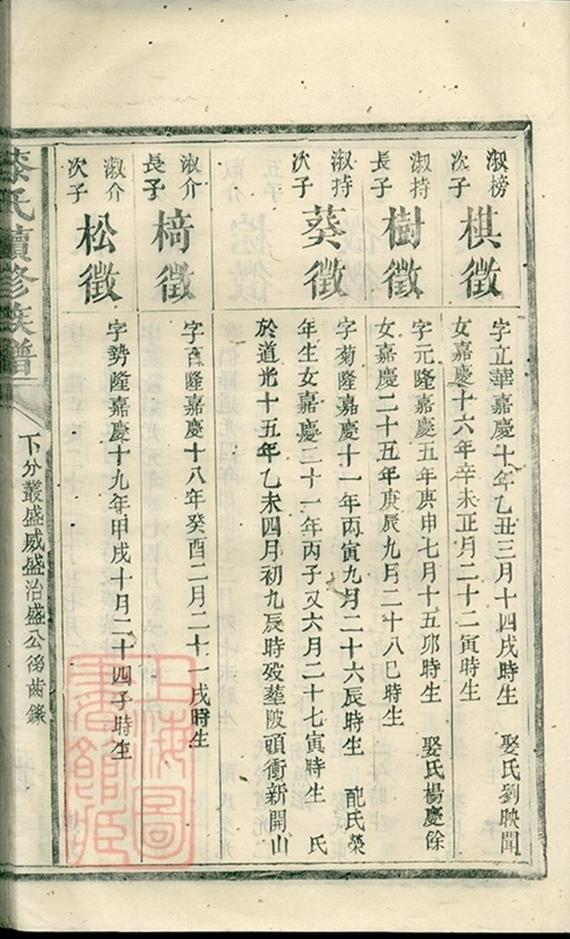 淑榜
次子
棋徵
字立華嘉慶十年乙丑三月十四戌時生 娶氏劉映聞
女嘉慶十六年辛未正月二十二寅時生
淑持
長子
樹徵
字元隆嘉慶五年庚申七月十五卯時生 娶氏楊慶餘
女嘉慶二十五年庚辰九月二十八巳時生
淑持
次子
葵徵
字菊隆嘉慶十一年丙寅九月二十六辰時生 配氏榮
年生女嘉慶二十一年丙子又六月二十七寅時生 氏
於道光十五年乙未四月初九辰時歿塟陂頭衝新開山
淑介
長子
椅徵
字百隆嘉慶十八年癸酉二月二十一戌時生
淑介
次子
松徵
字勢隆嘉慶十九年甲戌十月二十四子時生
氏續修族譜
下分叢盛威盛治盛公後齒錄
上海圖
書館臧